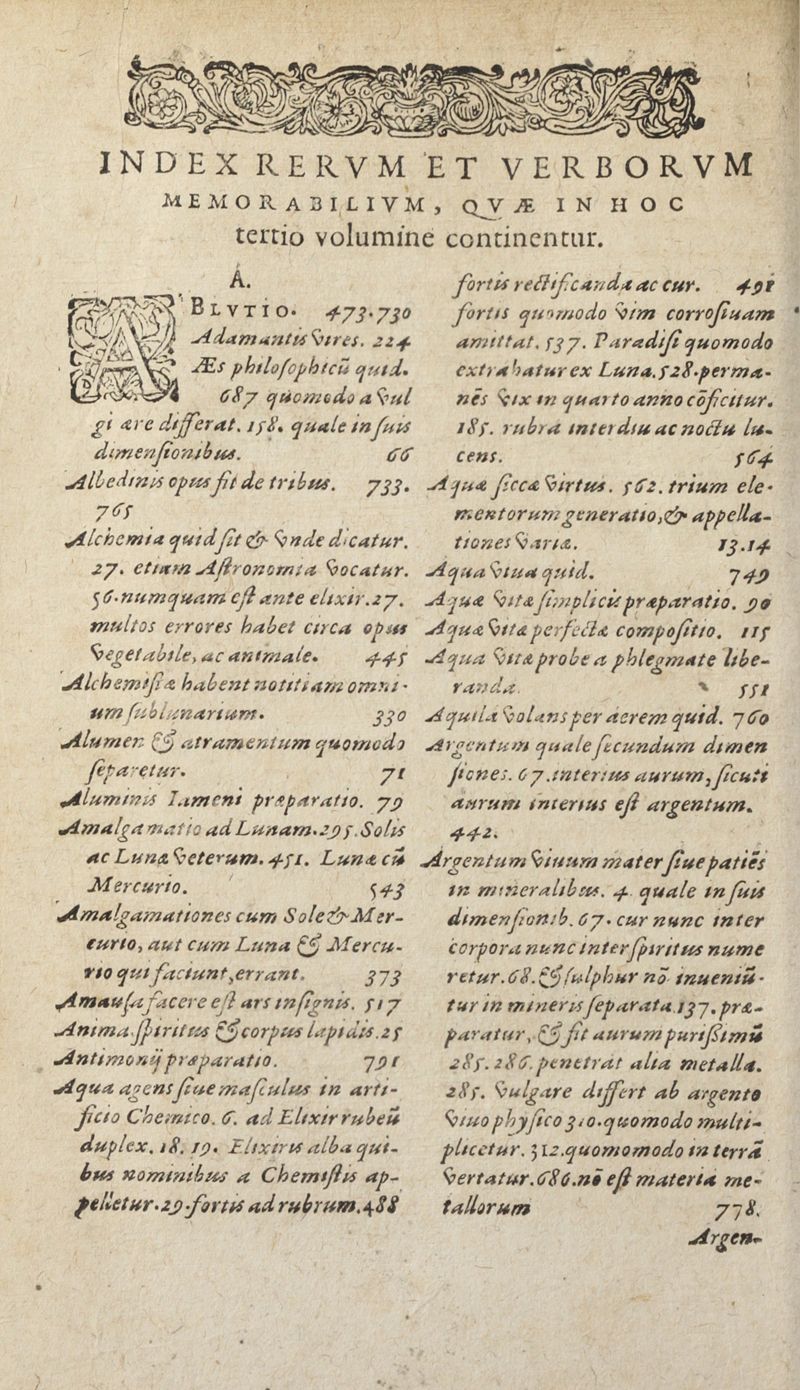 INDEX RERVM ET VERBORVM
MEMORABILIVM, QVÆ IN HOC
tertio volumine continentur.
A.
ABLVTIO. 473.730
Adamantis vires. 224
Æs philosophicū quid.
687 quomodo a vul
gi ære differat. 158. quale in suis
dimensionibus. 66
Albedinis opus fit de tribus. 733.
765
Alchemia quid sit & vnde dicatur.
27. etiam Astronomia vocatur.
56. numquam est ante elixir. 27.
multos errores habet circa opus
vegetabile, ac animale. 445
Alchemistæ habent notitiam omni-
um sublunarium. 330
Alumen & atramentum quomodo
separetur. 71
Aluminis Iameni præparatio. 79
Amalgamatio ad Lunam. 295. Solis
ac Lunæ veterum. 451. Lunæ cū
Mercurio. 543
Amalgamationes cum Sole & Mer-
curio, aut cum Luna & Mercu-
rio qui faciunt, errant. 373
Amausa facere est ars insignis. 517
Anima spiritus & corpus lapidis. 25
Antimonij præparatio. 791
Aqua agens siue masculus in arti-
ficio Chemico. 6. ad Elixir rubeū
duplex. 18. 19. Elixiris alba qui-
bus nominibus a Chemistis ap-
pelletur. 29. fortis ad rubrum. 488
fortis rectificanda ac cur. 491
fortis quomodo vim corrosiuam
amittat. 537. Paradisi quomodo
extrahatur ex Luna. 528. perma-
nēs vix in quarto anno cōficitur.
185. rubra interdiu ac noctu lu-
cens. 564
Aquæ siccæ virtus. 562. trium ele-
mentorum generatio, & appella-
tiones variæ. 13.14
Aqua viua quid. 749
Aquæ vitæ simplicis præparatio. 90
Aquæ vitæ perfectæ compositio. 115
Aqua vitæ probe a phlegmate libe-
randa. 551
Aquila volans per aerem quid. 760
Argentum quale secundum dimen
siones. 67. interius aurum, sicuti
aurum interius est argentum.
442.
Argentum viuum mater siue patiēs
in mineralibus. 4. quale in suis
dimensionib. 67. cur nunc inter
corpora nunc inter spiritus nume
retur. 68. & sulphur nō inueniū-
tur in mineris separata. 137. præ-
paratur, & fit aurum purissimū
285. 286. penetrat alia metalla.
285. vulgare differt ab argento
viuo physico 310. quomodo multi-
plicetur. 312. quomomodo in terrā
vertatur. 686. nō est materia me-
tallorum 778.
Argen-